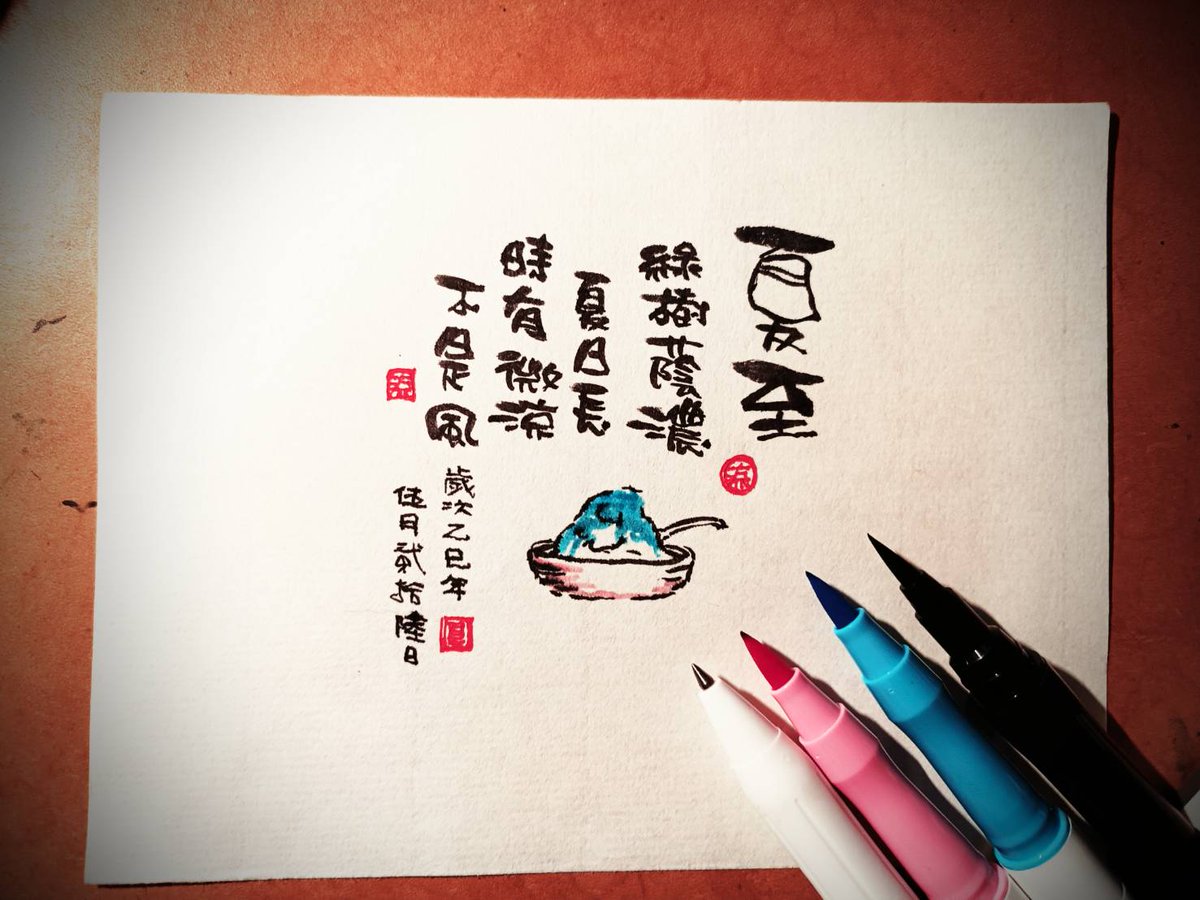 夏至
綠樹蔭濃
夏日長
時有微涼
不是風
歲次乙巳年
伍月貳拾陸日